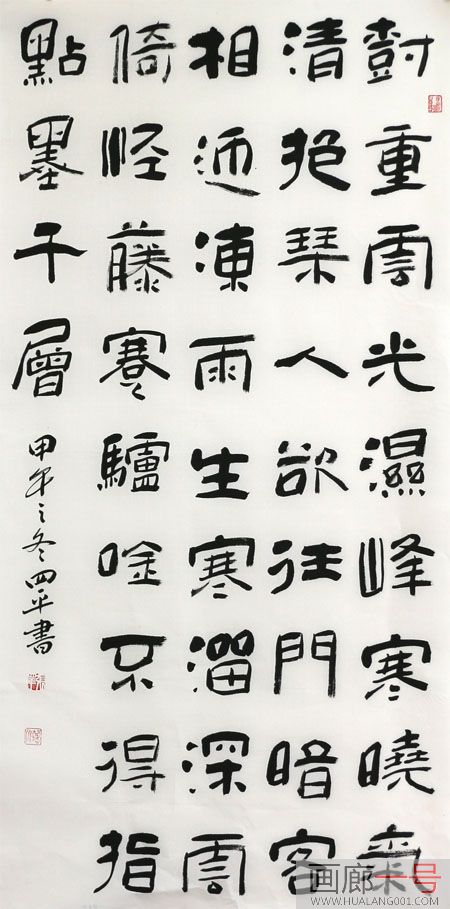 尌重雲光濕峰寒曉氣
清抱琴人欲往門暗客
相迎凍雨生寒溜深雲
倚徑藤蹇驢唫不得指
點墨千層
甲午之冬四平書
画廊一号
WWW.HUALANG001.COM